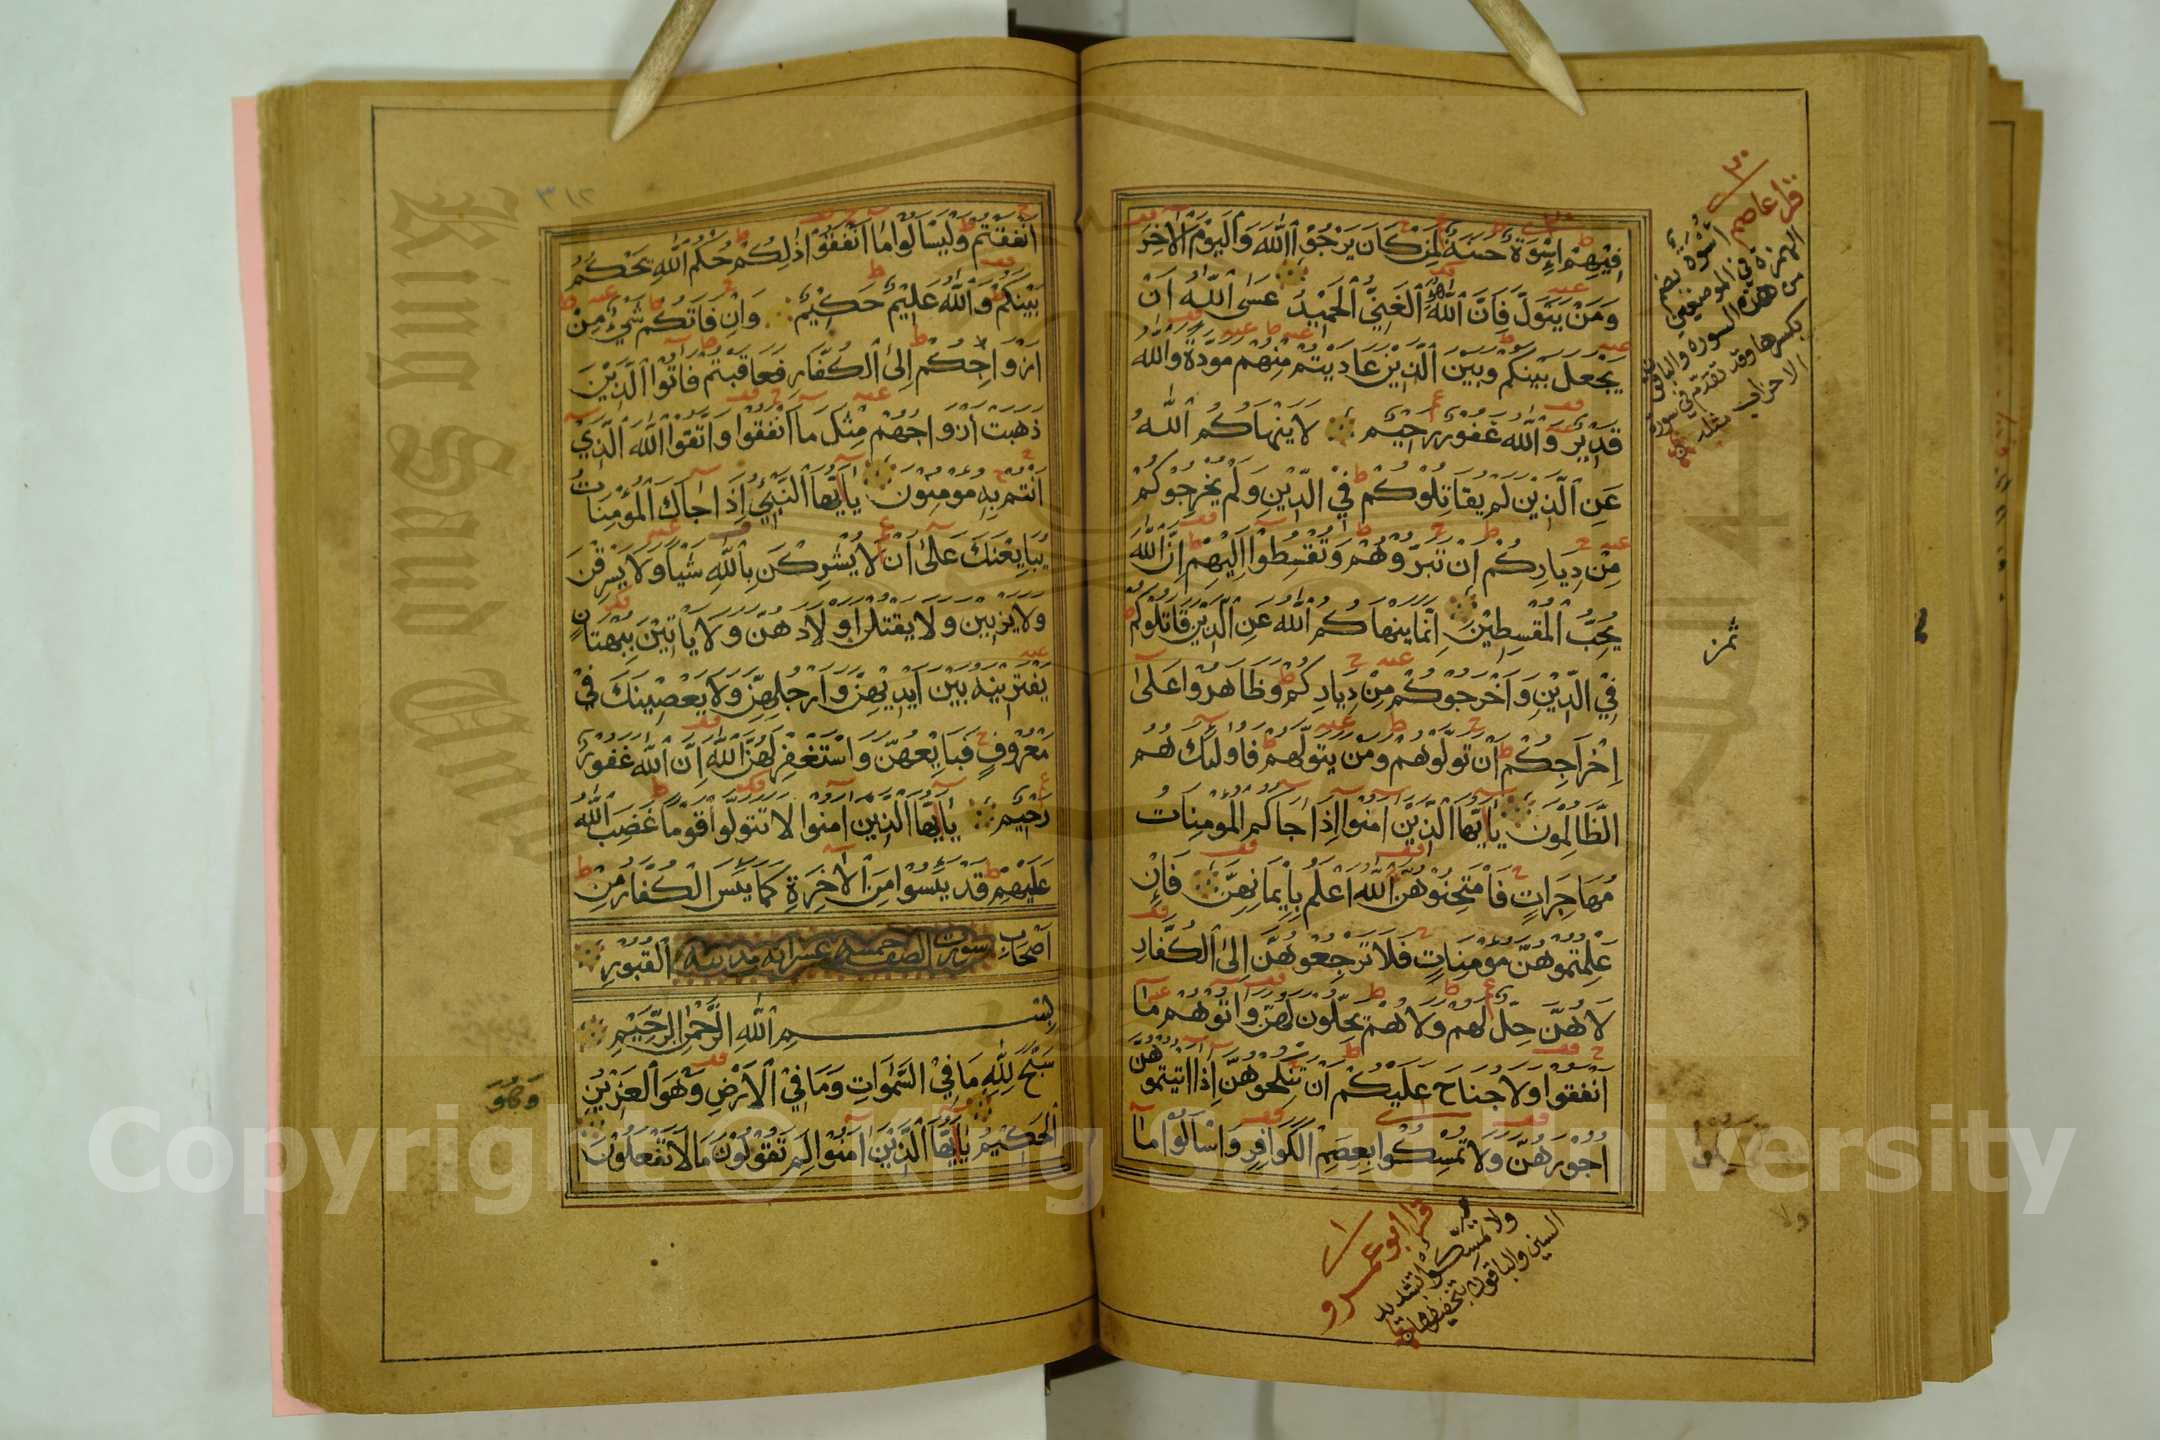 فِيْهِمْ اِسْوَةٌ حَسَنَةٌ لِمَنْ كَانَ يَرْجُوْا اللّٰهَ وَالْيَوْمَ الْاٰخِرَ
وَمَنْ يَتَوَلَّ فَاِنَّ اللّٰهَ هُوَ الْغَنِيُّ الْحَمِيْدُ عَسَى اللّٰهُ اَنْ
يَجْعَلَ بَيْنَكُمْ وَبَيْنَ الَّذِيْنَ عَادَيْتُمْ مِنْهُمْ مَوَدَّةً وَاللّٰهُ
قَدِيْرٌ وَاللّٰهُ غَفُوْرٌ رَحِيْمٌ لَا يَنْهَاكُمُ اللّٰهُ
عَنِ الَّذِيْنَ لَمْ يُقَاتِلُوْكُمْ فِي الدِّيْنِ وَلَمْ يُخْرِجُوْكُمْ
مِنْ دِيَارِكُمْ اَنْ تَبَرُّوْهُمْ وَتُقْسِطُوْا اِلَيْهِمْ اِنَّ اللّٰهَ
يُحِبُّ الْمُقْسِطِيْنَ اِنَّمَا يَنْهَاكُمُ اللّٰهُ عَنِ الَّذِيْنَ قَاتَلُوْكُمْ
فِي الدِّيْنِ وَاَخْرَجُوْكُمْ مِنْ دِيَارِكُمْ وَظَاهَرُوْا عَلٰى
اِخْرَاجِكُمْ اَنْ تَوَلَّوْهُمْ وَمَنْ يَتَوَلَّهُمْ فَاُولٰئِكَ هُمُ
الظَّالِمُوْنَ يٰاَيُّهَا الَّذِيْنَ اٰمَنُوْا اِذَا جَاكُمُ الْمُؤْمِنَاتُ
مُهَاجِرَاتٍ فَامْتَحِنُوْهُنَّ اللّٰهُ اَعْلَمُ بِاِيْمَانِهِنَّ فَاِنْ
عَلِمْتُمُوْهُنَّ مُؤْمِنَاتٍ فَلَا تَرْجِعُوْهُنَّ اِلَى الْكُفَّارِ
لَا هُنَّ حِلٌّ لَهُمْ وَلَا هُمْ يَحِلُّوْنَ لَهُنَّ وَاٰتُوْهُمْ مَا
اَنْفَقُوْا وَلَا جُنَاحَ عَلَيْكُمْ اَنْ تَنْكِحُوْهُنَّ اِذَا اٰتَيْتُمُوْهُنَّ
اُجُوْرَهُنَّ وَلَا تُمْسِكُوْا بِعِصَمِ الْكَوَافِرِ وَاسْاَلُوْا مَا
قرا عاصم
اسوة بضم
الهمزة في الموضعين
من هذه السورة والباقون
بكسرها وقد تقدم في سورة
الاحزاب
ثمن
قرا ابو عمرو
ولا تمسّكوا بتشديد
السين والباقون بتخفيفها
٣١٢
اَنْفَقْتُمْ وَلْيَسْاَلُوْا مَا اَنْفَقُوْا ذٰلِكُمْ حُكْمُ اللّٰهِ يَحْكُمُ
بَيْنَكُمْ وَاللّٰهُ عَلِيْمٌ حَكِيْمٌ وَاِنْ فَاتَكُمْ شَيْءٌ مِنْ
اَزْوَاجِكُمْ اِلَى الْكُفَّارِ فَعَاقَبْتُمْ فَاٰتُوا الَّذِيْنَ
ذَهَبَتْ اَزْوَاجُهُمْ مِثْلَ مَا اَنْفَقُوْا وَاتَّقُوا اللّٰهَ الَّذِيْ
اَنْتُمْ بِهِ مُؤْمِنُوْنَ يٰاَيُّهَا النَّبِيُّ اِذَا جَاكَ الْمُؤْمِنَاتُ
يُبَايِعْنَكَ عَلٰى اَنْ لَا يُشْرِكْنَ بِاللّٰهِ شَيْاً وَلَا يَسْرِقْنَ
وَلَا يَزْنِيْنَ وَلَا يَقْتُلْنَ اَوْلَادَهُنَّ وَلَا يَاْتِيْنَ بِبُهْتَانٍ
يَفْتَرِيْنَهُ بَيْنَ اَيْدِيْهِنَّ وَاَرْجُلِهِنَّ وَلَا يَعْصِيْنَكَ فِيْ
مَعْرُوْفٍ فَبَايِعْهُنَّ وَاسْتَغْفِرْ لَهُنَّ اللّٰهَ اِنَّ اللّٰهَ غَفُوْرٌ
رَحِيْمٌ يٰاَيُّهَا الَّذِيْنَ اٰمَنُوْا لَا تَتَوَلَّوْا قَوْمًا غَضِبَ اللّٰهُ
عَلَيْهِمْ قَدْ يَئِسُوْا مِنَ الْاٰخِرَةِ كَمَا يَئِسَ الْكُفَّارُ مِنْ
اَصْحَابِ الْقُبُوْرِ
سورة الصف خمسة عشر اية مدنية
بِسْمِ اللّٰهِ الرَّحْمٰنِ الرَّحِيْمِ
سَبَّحَ لِلّٰهِ مَا فِي السَّمٰوَاتِ وَمَا فِي الْاَرْضِ وَهُوَ الْعَزِيْزُ
الْحَكِيْمُ يٰاَيُّهَا الَّذِيْنَ اٰمَنُوْا لِمَ تَقُوْلُوْنَ مَا لَا تَفْعَلُوْنَ
وَهُوَ
King Saud Univ
Copyright © King Saud University